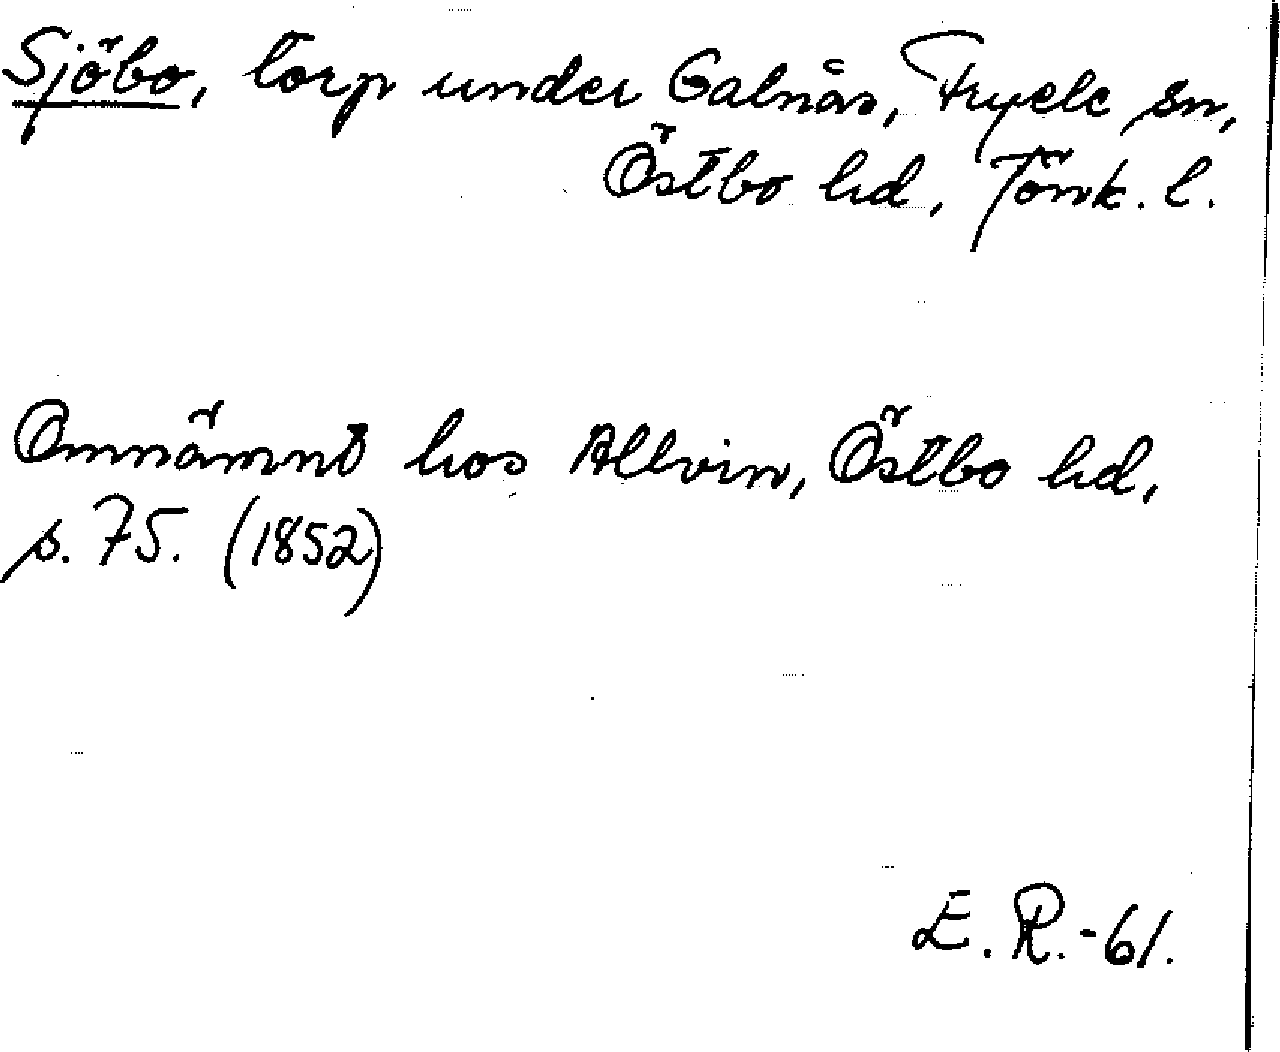 Sjöbo, torp under Galnås, Fryele sn,
Östbo hd, Jönk. l.
Omnämnt hos Allvin, Östbo hd,
s. 75. (1852)
E. R. -61.